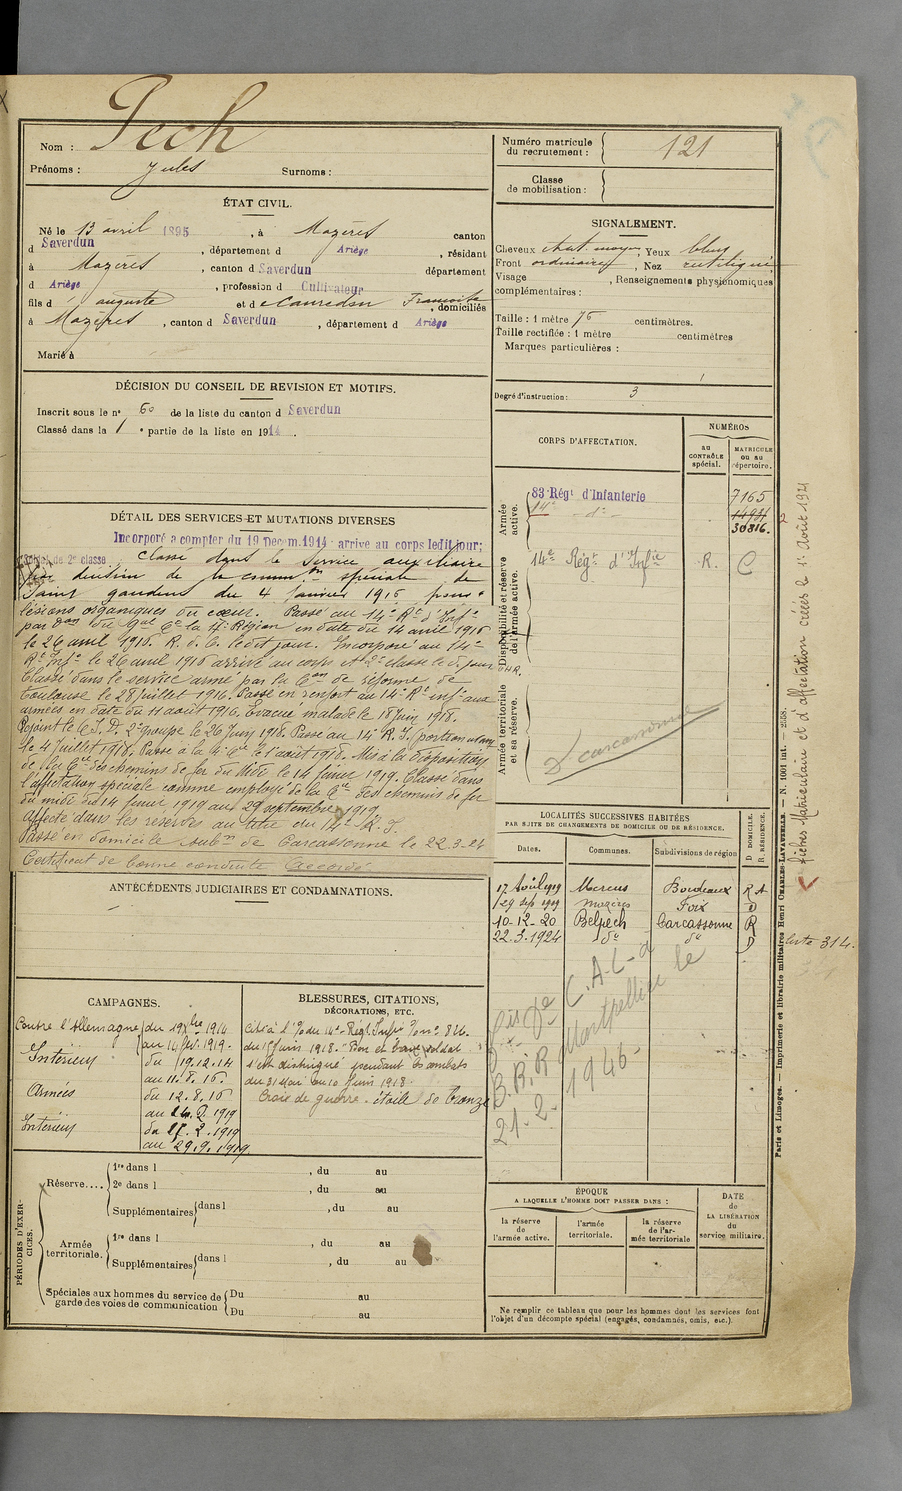 Nom : Pech
Prénoms : Jules Surnoms :
ÉTAT CIVIL.
Né le 13 avril 1895, à Mazères canton
d Saverdun, département d Ariège, résidant
à Mazères, canton d Saverdun département
d Ariège, profession d Cultivateur
fils d auguste et d Françoise, domiciliés
à Mazères, canton d Saverdun, département d Ariège
Marié à
DÉCISION DU CONSEIL DE REVISION ET MOTIFS.
Inscrit sous le n° 60 de la liste du canton d Saverdun
Classé dans la 1e partie de la liste en 1914.
DÉTAIL DES SERVICES ET MUTATIONS DIVERSES
Incorporé a compter du 19 Décem. 1914 arrive au corps ledit jour;
soldat de 2e classe classé dans le Service auxiliaire
division de la comm.on spéciale de
Saint gaudens du 4 Janvier 1916 pour
lésions organiques du cœur. Passé au 14e Rt d'Infie
par Don du Gal Ct la 17e Région en date du 14 avril 1916
le 26 avril 1916. R. d. C. le dit jour. Incorporé au 14e
Rt Infie le 26 avril 1916 arrivé au corps et 2e classe le d. jour
Classé dans le service armé par la Con de réforme de
Toulouse le 28 juillet 1916. Passé en renfort au 14e Rt infie aux
armées en date du 11 août 1916. Evacué malade le 18 Juin 1918.
Rejoint le C.I.D. 2e groupe le 26 Juin 1918. Passé au 14e R.I.
le 4 juillet 1918. Passé à la 4e Cie le 1er août 1918. Mis à la disposition
de la Cie des chemins de fer du Midi le 14 février 1919. Classé dans
l'affectation spéciale comme employé de la Cie des chemins de fer
du midi du 14 février 1919 au 29 septembre 1919
affecté dans les réserves au titre du 14e R.I.
Passé en domicile subon de Carcassonne le 22.3.24
Certificat de bonne conduite Accordé
ANTÉCÉDENTS JUDICIAIRES ET CONDAMNATIONS.
CAMPAGNES.
Contre l'Allemagne du 19 Xbre 1914
au 14 fév. 1919.
Intérieur du 19.12.14
au 11.8.16.
Armées du 12.8.16
au 24.2.1919
Intérieur du 25.2.1919
au 29.9.1919.
BLESSURES, CITATIONS,
DÉCORATIONS, ETC.
Cité à l'O du 14e Régt Infie
du 15 juin 1918. "Bon et brave soldat
s'est distingué pendant les combats
du 31 Mai au 10 Juin 1918.
Croix de guerre - étoile de bronze
PÉRIODES D'EXERCICES.
Réserve....
1re dans l , du au
2e dans l , du au
Supplémentaires dans l , du au
Armée territoriale.
1re dans l , du au
Supplémentaires dans l , du au
Spéciales aux hommes du service de garde des voies de communication
Du au
Du au
Numéro matricule du recrutement : 121
Classe de mobilisation :
SIGNALEMENT.
Cheveux chat. moyen, Yeux bleus
Front ordinaire, Nez rectiligne
Visage , Renseignements physionomiques
complémentaires :
Taille : 1 mètre 76 centimètres.
Taille rectifiée : 1 mètre centimètres
Marques particulières :
Degré d'instruction : 3
CORPS D'AFFECTATION.
NUMÉROS
au CONTRÔLE spécial.
MATRICULE ou au répertoire.
Armée active.
83e Régt d'Infanterie 7165
14e do
30816.
Disponibilité et réserve de l'armée active.
14e Régt d'Infie R. C
Armée territoriale et sa réserve.
Dt carcassonne
LOCALITÉS SUCCESSIVES HABITÉES
PAR SUITE DE CHANGEMENTS DE DOMICILE OU DE RÉSIDENCE.
Dates. Communes. Subdivisions de région D DOMICILE. R RÉSIDENCE.
17 Août 1919 Mercus Bordeaux R A
29 sep 1919 Mazères Foix D
10-12-20 Belpech Carcassonne R
22.3.1924 do do D
C.A.L-d
B.R.R Montpellier le
21-2-1946-
ÉPOQUE
A LAQUELLE L'HOMME DOIT PASSER DANS :
la réserve de l'armée active.
l'armée territoriale.
la réserve de l'armée territoriale
DATE de LA LIBÉRATION du service militaire.
Ne remplir ce tableau que pour les hommes dont les services font
l'objet d'un décompte spécial (engagés, condamnés, omis, etc.).
fiches Matriculaire et d'affectation créées le 1er Août 1921
liste 314.
Paris et Limoges. — Imprimerie et librairie militaires Henri CHARLES-LAVAUZELLE. — N. 1001 int. — 2558.